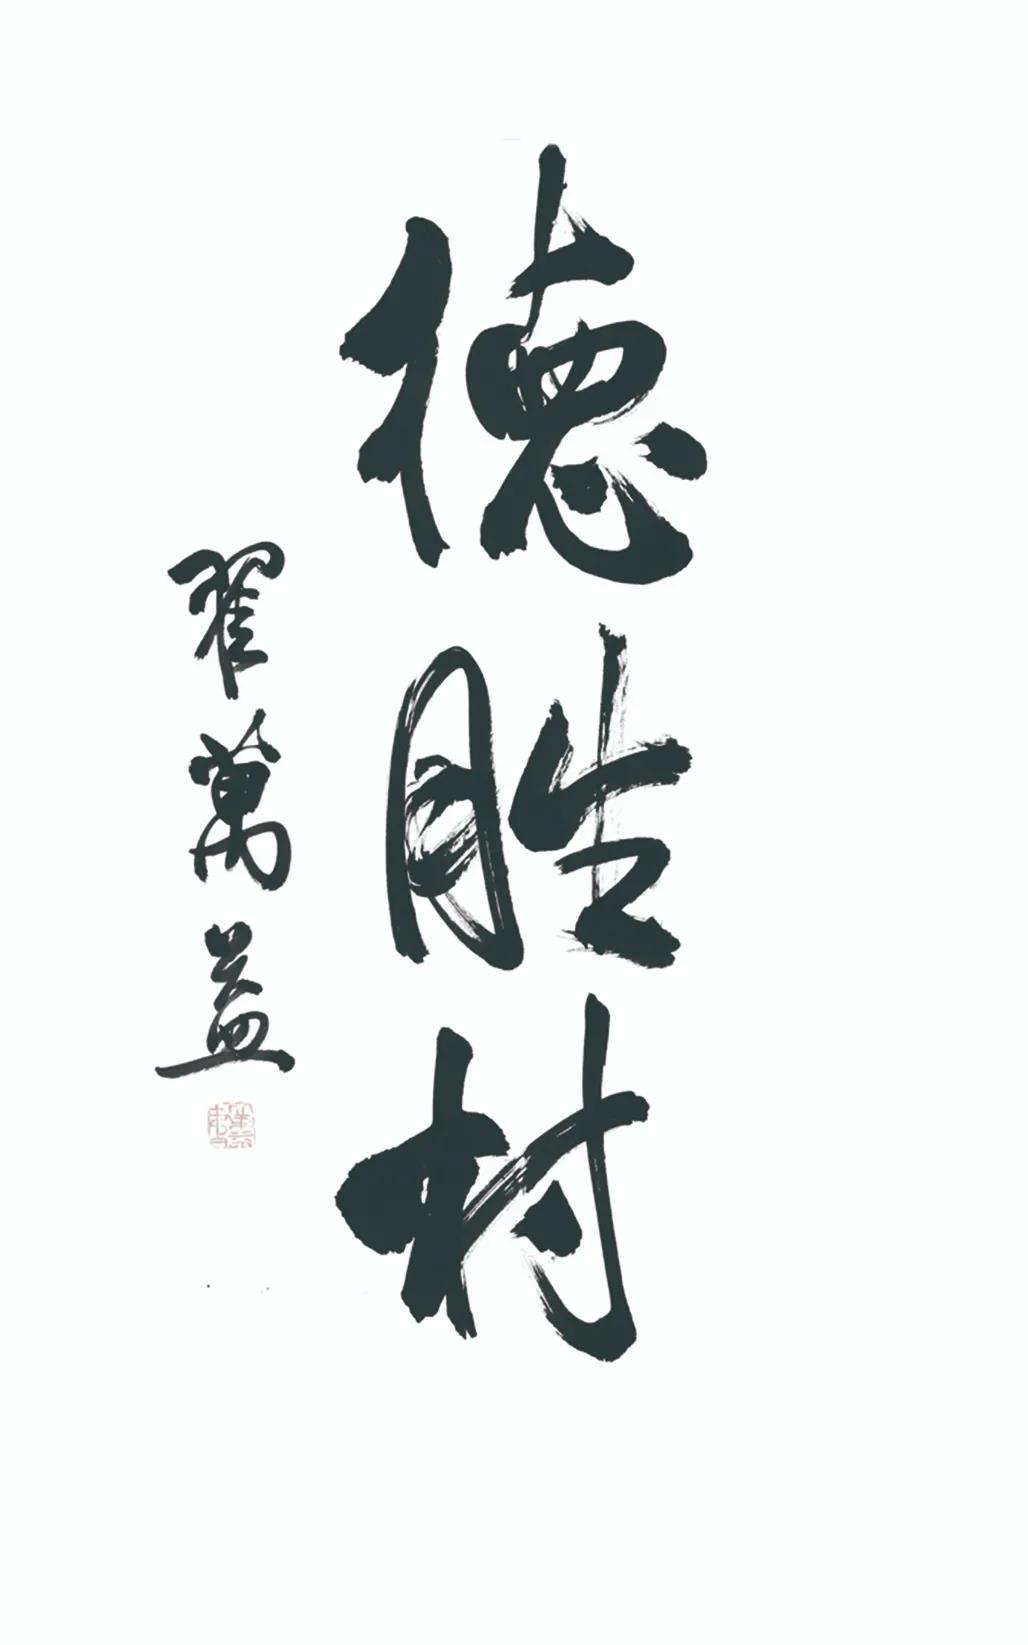 德胜村
翟萬益